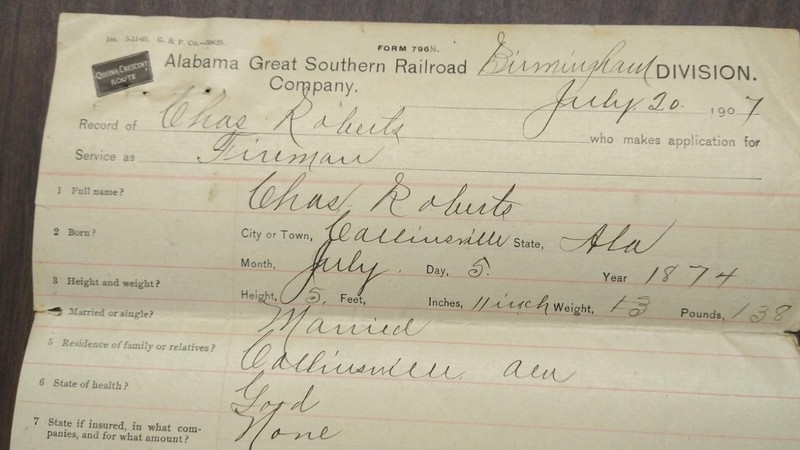 Iss. 5-21-05. G. & P. Co.—59625.
FORM 796½.
QUEEN & CRESCENT
ROUTE
Alabama Great Southern Railroad Birmingham DIVISION.
Company.
July 20 1907
Record of Chas Roberts who makes application for
Service as Fireman
1 Full name? Chas Roberts
2 Born? City or Town, Collinsville State, Ala
Month, July. Day, 5. Year 1874
3 Height and weight? Height, 5. Feet, Inches, 11 inch Weight, 13 Pounds, 138
Married or single? Married
5 Residence of family or relatives? Collinsville. Ala
6 State of health? Good
7 State if insured, in what com-
panies, and for what amount? None